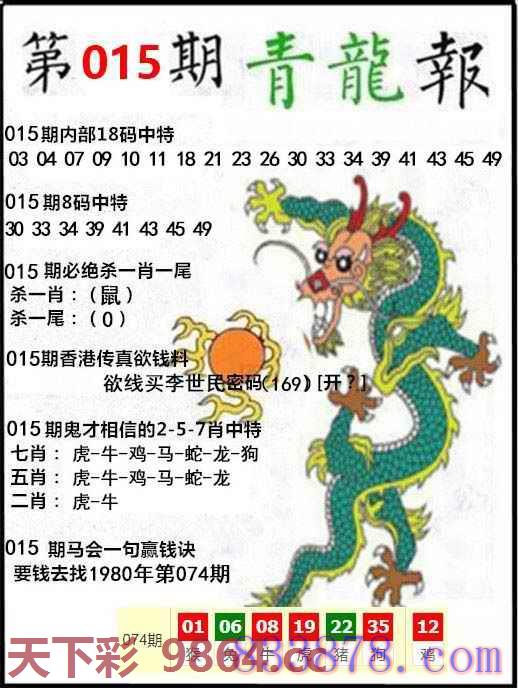 第015期青龍報
015期内部18码中特
03 04 07 09 10 11 18 21 23 26 30 33 34 39 41 43 45 49
015期8码中特
30 33 34 39 41 43 45 49
015期必绝杀一肖一尾
杀一肖：(鼠)
杀一尾：(0)
015期香港传真欲钱料
欲线买李世民密码(169)[开?]
015期鬼才相信的2-5-7肖中特
七肖：虎-牛-鸡-马-蛇-龙-狗
五肖：虎-牛-鸡-马-蛇-龙
二肖：虎-牛
015期马会一句赢钱诀
要钱去找1980年第074期
074期 01 06 08 19 22 35 12
猴 兔 牛 虎 猪 狗 鸡
天下彩 9864.cc